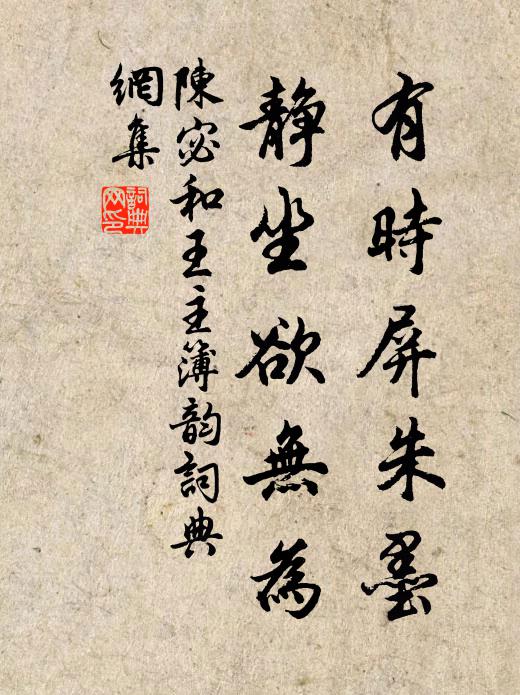 有時屏朱墨
静坐欲無為
陳宓和王主簿韵詞典
網集
詞典
网印